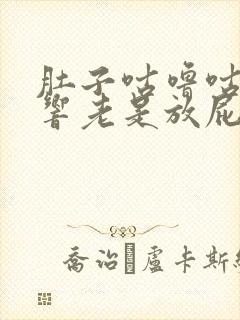 肚子咕噜咕
響老是放屁
喬治 盧卡斯